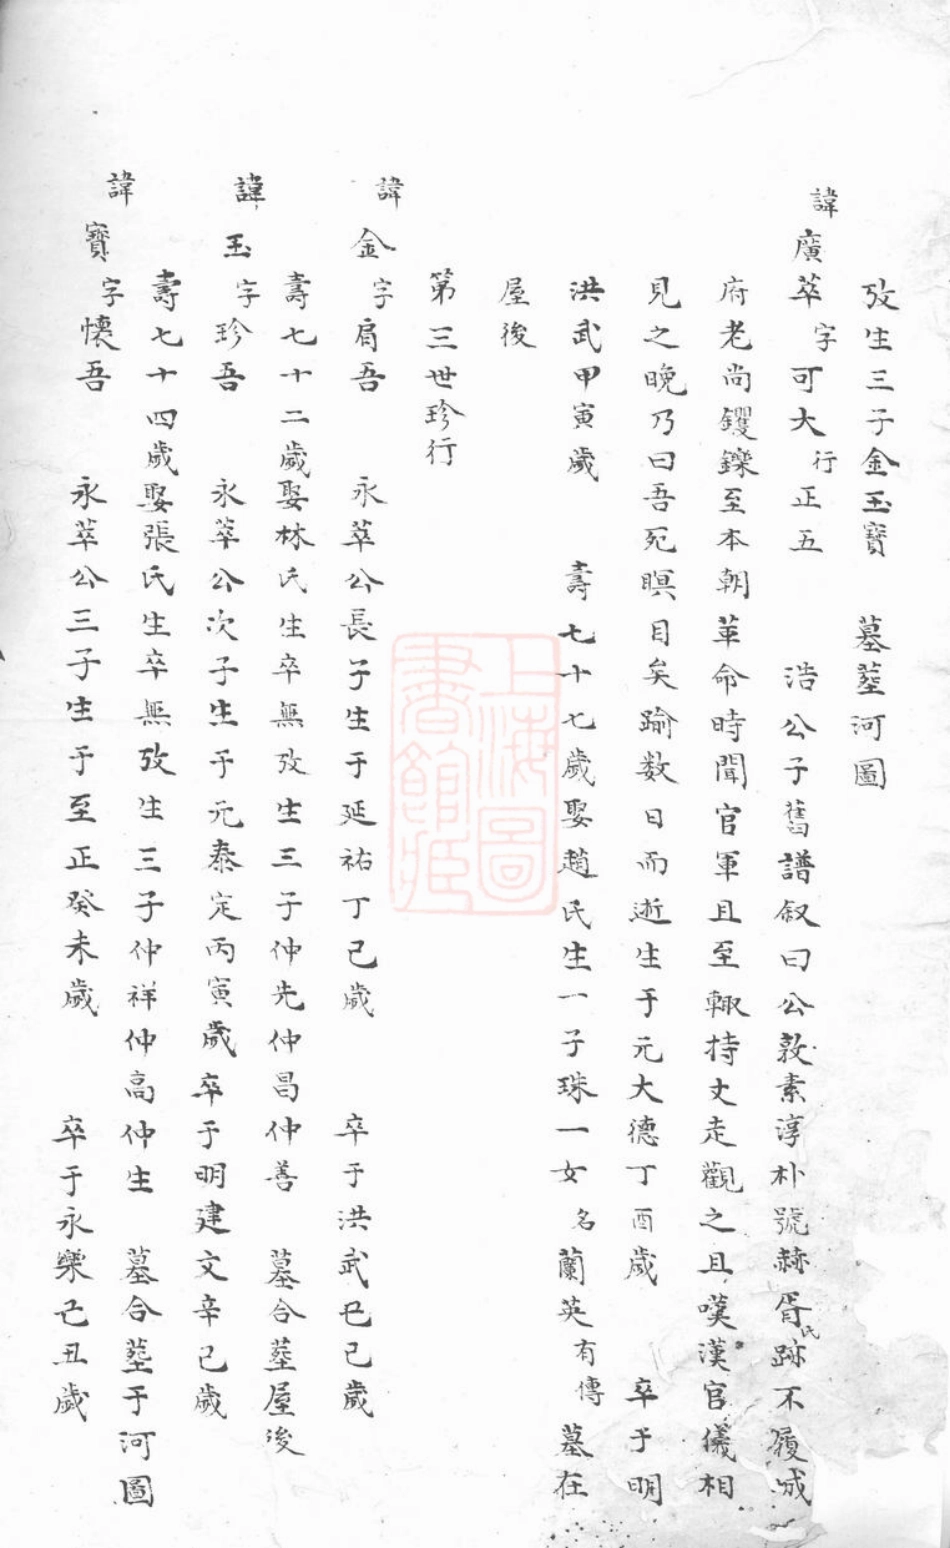 攷生三子金玉寶 墓塟河圖
諱廣萃字可大行正五 浩公子舊譜叙曰公敦素淳朴號赫胥氏跡不履城
府老尚鑺鑠至本朝革命時聞官軍且至輙持丈走觀之且嘆漢官儀相
見之晚乃曰吾死瞑目矣踰数日而逝生于元大德丁酉歲 卒于明
洪武甲寅歲 壽七十七歲娶趙氏生一子珠一女名蘭英有傳墓在
屋後
第三世珍行
諱金字肩吾 永萃公長子生于延祐丁巳歲 卒于洪武己巳歲
壽七十二歲娶林氏生卒無攷生三子仲先仲昌仲善 墓合塟屋後
諱玉字珍吾 永萃公次子生于元泰定丙寅歲卒于明建文辛巳歲
壽七十四歲娶張氏生卒無攷生三子仲祥仲高仲生 墓合塟于河圖
諱寶字懷吾 永萃公三子生于至正癸未歲 卒于永樂己丑歲
上海圖
書館藏